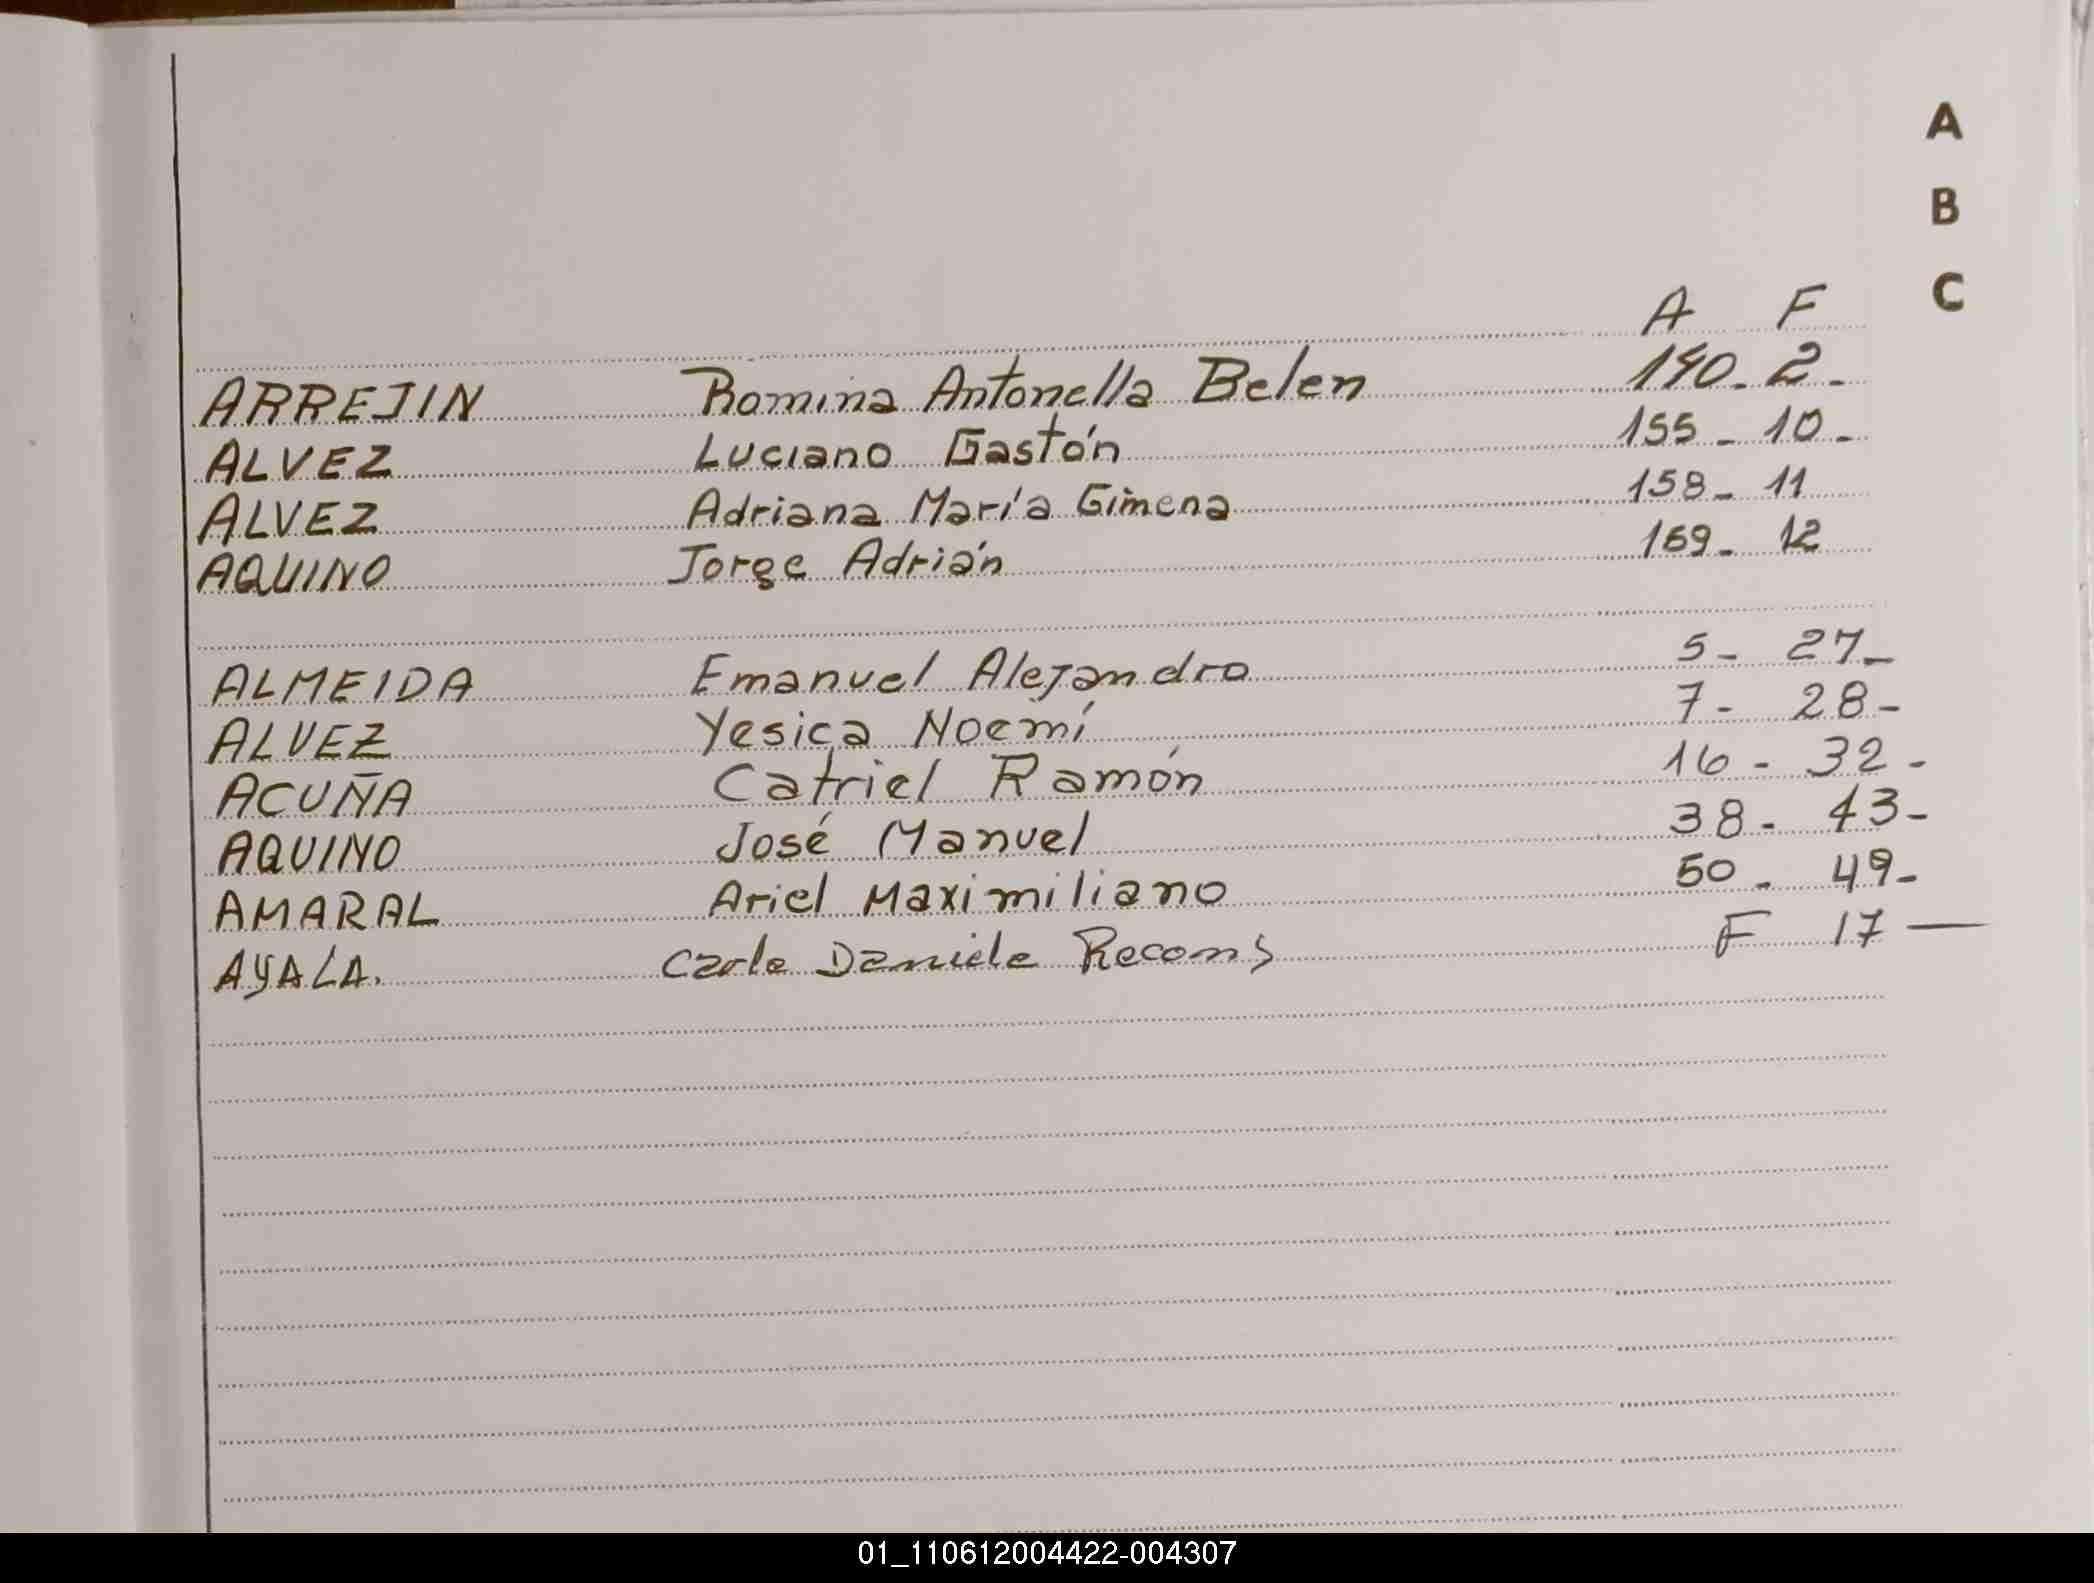 A
B
C
A F
ARREJIN Romina Antonella Belen 140- 2-
ALVEZ Luciano Gastón 155- 10-
ALVEZ Adriana María Gimena 158- 11
AQUINO Jorge Adrián 169- 12
ALMEIDA Emanuel Alejandro 5- 27-
ALVEZ Yesica Noemí 7- 28-
ACUÑA Catriel Ramón 16- 32-
AQUINO José Manuel 38- 43-
AMARAL Ariel Maximiliano 50- 49-
AYALA. Carla Daniela F 17 —
01_110612004422-004307